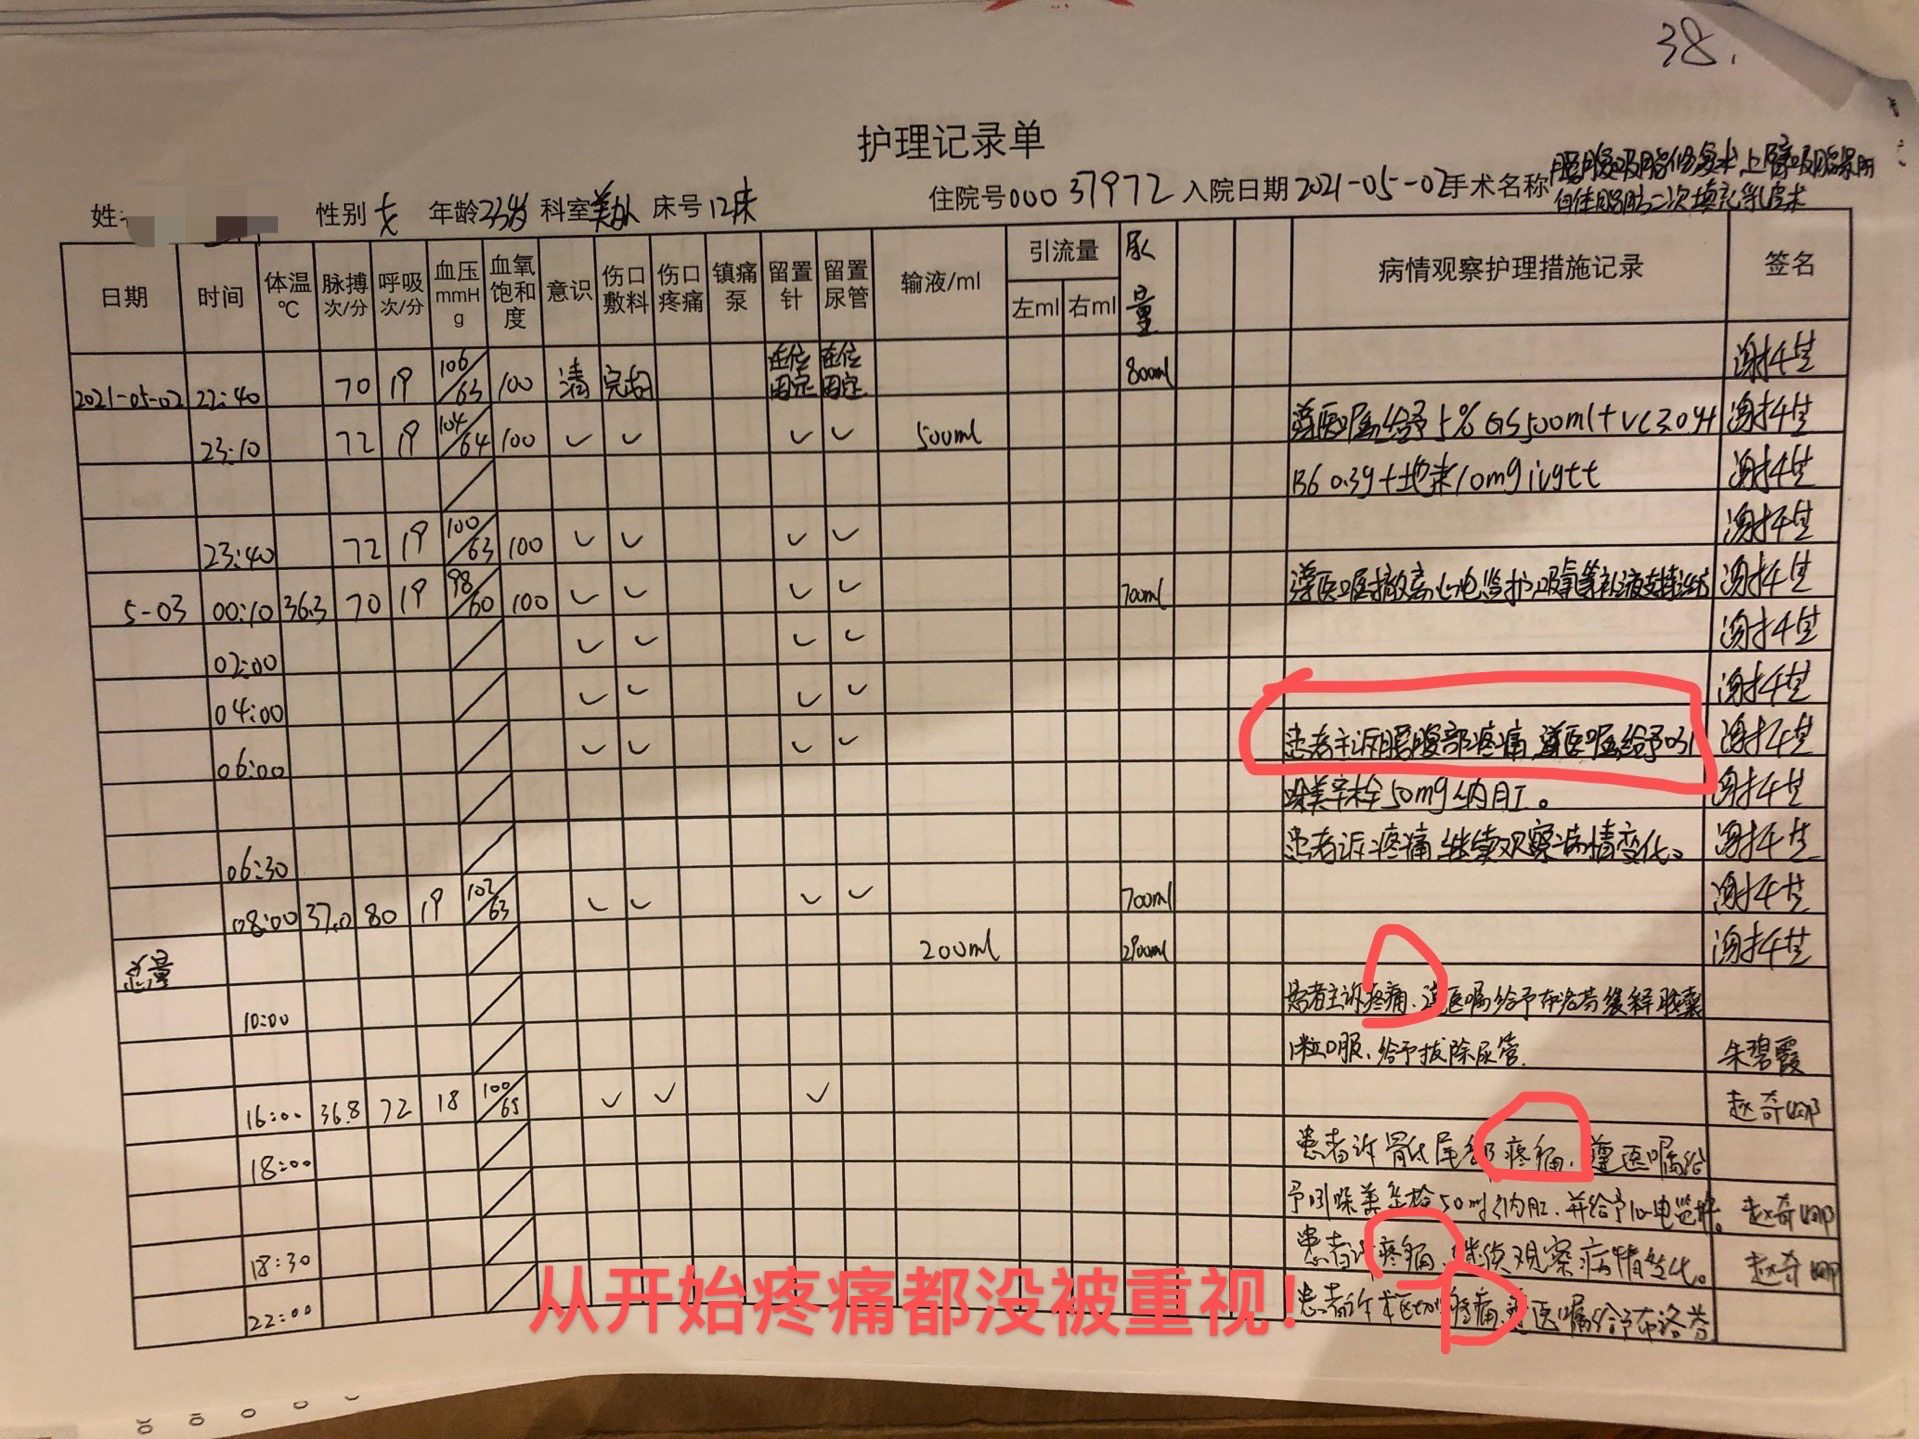 38.
护理记录单
性别 女 年龄 23岁 科室 美外 床号 12床 住院号 00037972 入院日期 2021-05-02 手术名称 腰腹吸脂修复术,上臂吸脂
自体脂肪二次填充
日期 时间 体温℃ 脉搏次/分 呼吸次/分 血压mmHg 血氧饱和度 意识 伤口敷料 伤口疼痛 镇痛泵 留置针 留置尿管 输液/ml 引流量 左ml 右ml 尿量 病情观察护理措施记录 签名
2021-05-02 22:40 70 19 106/63 100 清 完好 在位固定 在位固定 800ml
23:10 72 19 104/64 100 ✓ ✓ ✓ ✓ 500ml 遵医嘱给予5%GS500ml+VC3.0+
B6 0.3g+地米10mg ivgtt
23:40 72 19 100/63 100 ✓ ✓ ✓ ✓
5-03 00:10 36.3 70 19 98/60 100 ✓ ✓ ✓ ✓ 700ml 遵医嘱撤离心电监护,吸氧等补液支持治疗
02:00 ✓ ✓ ✓ ✓
04:00 ✓ ✓ ✓ ✓
06:00 ✓ ✓ ✓ ✓ 患者主诉腰腹部疼痛,遵医嘱给予吲
哚美辛栓50mg纳肛。
06:30 患者诉疼痛,继续观察病情变化。
08:00 37.0 80 19 102/63 ✓ ✓ ✓ ✓ 700ml
总量 200ml 2900ml
10:00 患者主诉疼痛,遵医嘱给予布洛芬缓释胶囊
1粒口服,给予拔除尿管. 朱碧霞
16:00 36.8 72 18 100/65 ✓ ✓ ✓ 赵奇娜
18:00 患者诉骶尾部疼痛,遵医嘱给
予吲哚美辛栓50mg纳肛,并给予心电监护。 赵奇娜
18:30 患者诉疼痛,继续观察病情变化。 赵奇娜
22:00 患者诉术区切口疼痛,遵医嘱给予布洛芬
从开始疼痛都没被重视!